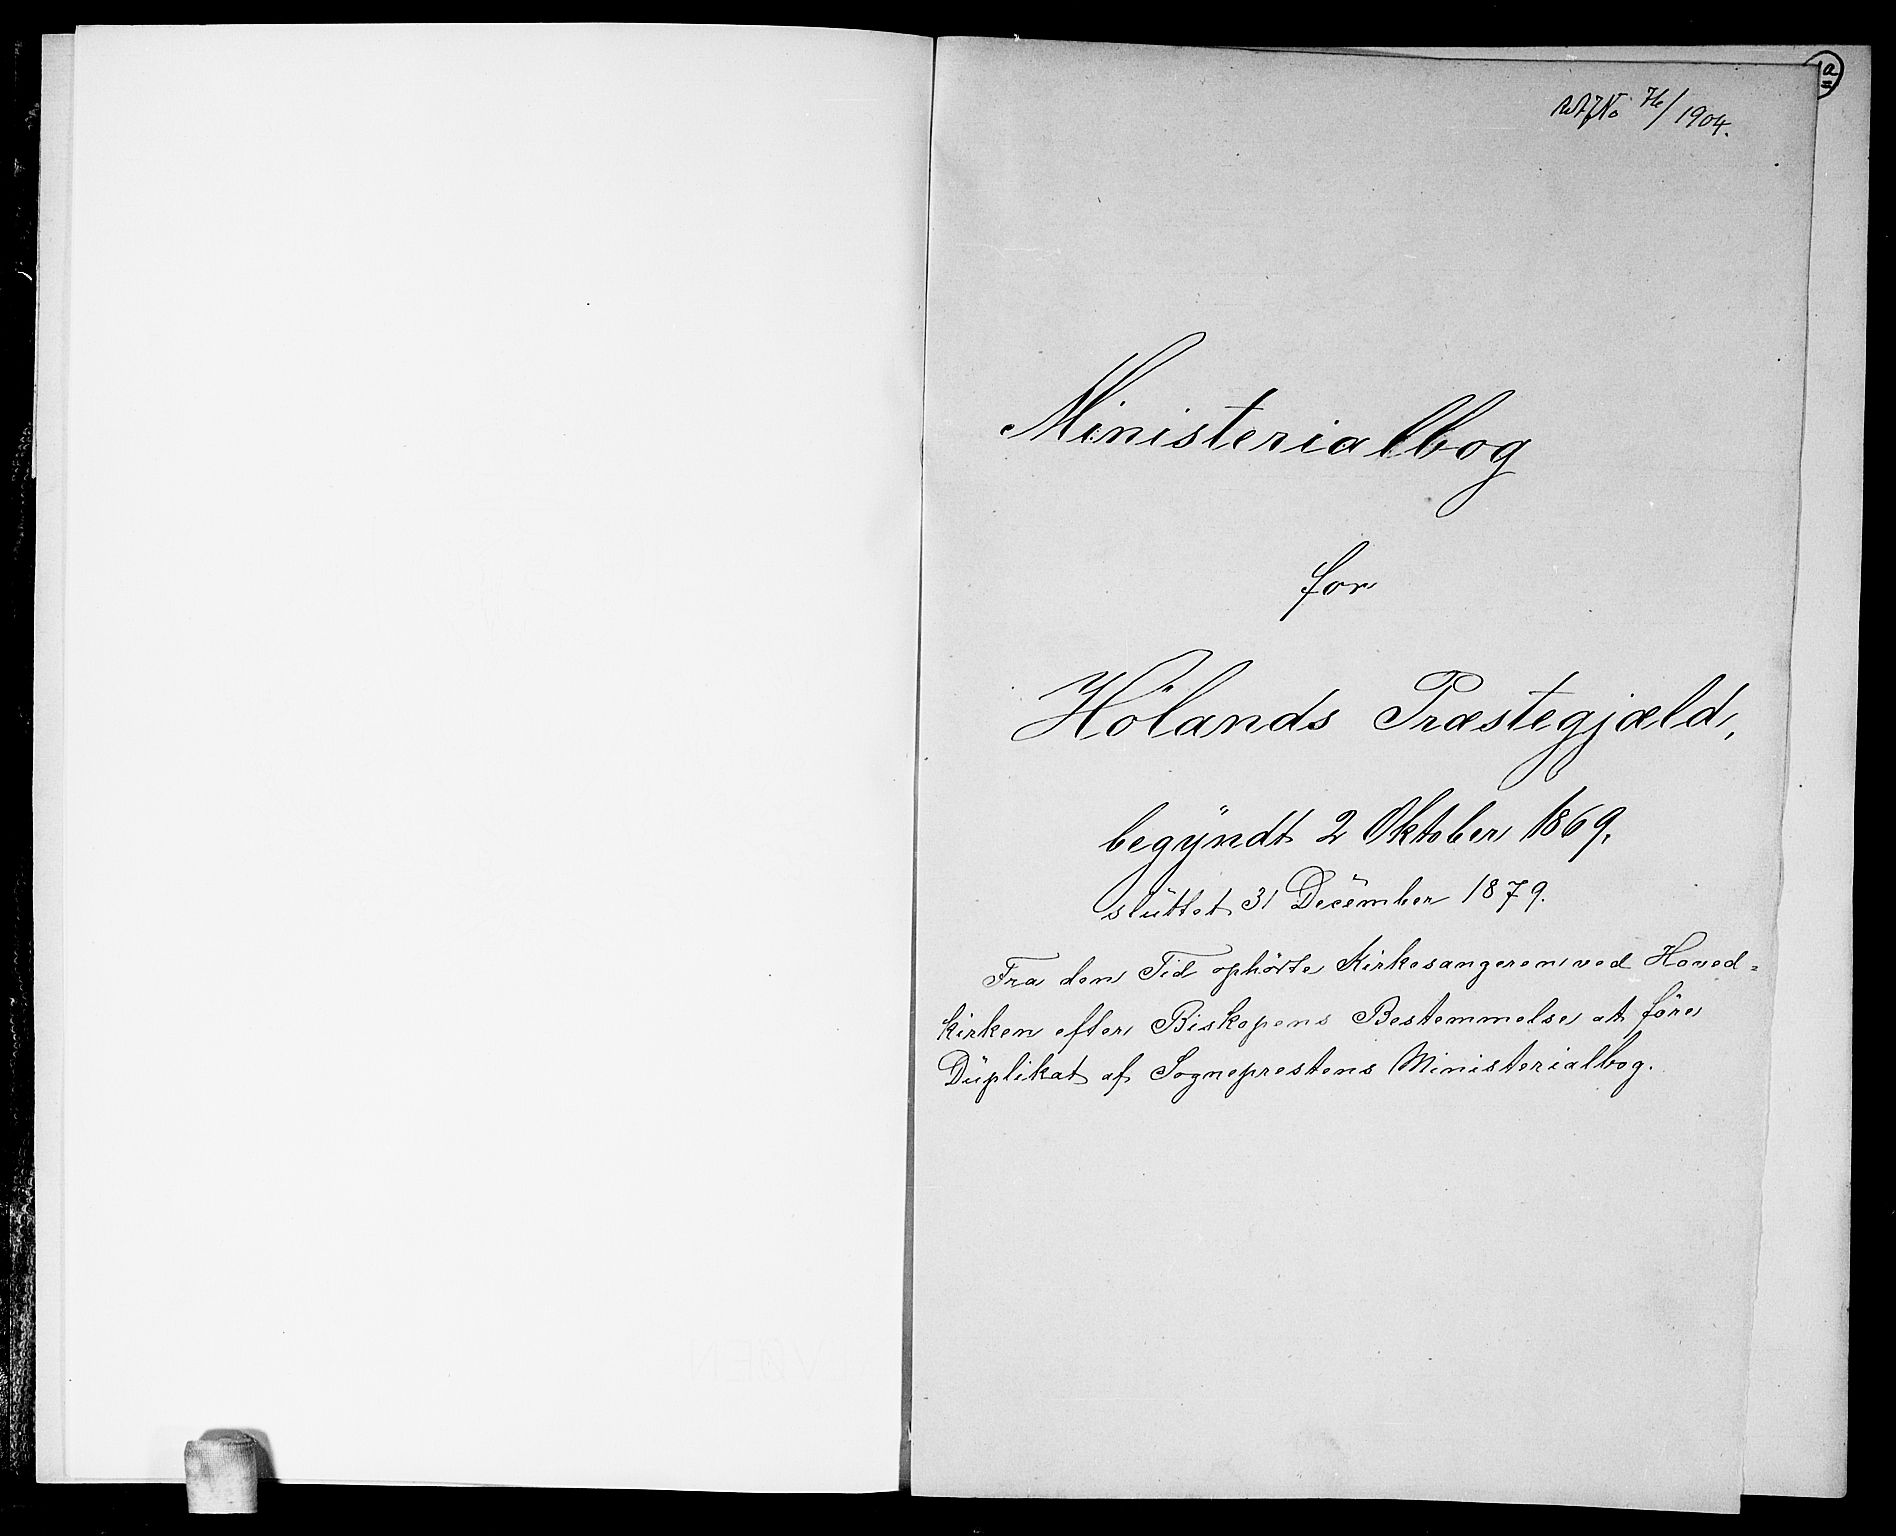 a
No 76/1904.
Ministerialbog
for
Hölands Præstegjæld,
begÿndt 2 Oktober 1869,
slŭttet 31 December 1879.
Fra den Tid ophörte Kirkesangeren ved Hoved=
kirken efter Biskopens Bestemmelse at före
Dŭplikat af Sogneprestens Ministerialbog.